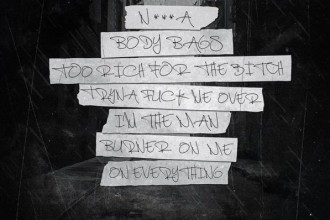 N***A
BODY BAGS
TOO RICH FOR THE BITCH
TRYNA FUCK ME OVER
I'M THE MAN
BURNER ON ME
ON EVERYTHING